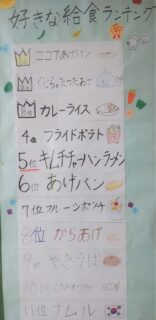 好きな給食ランキング
ココアあげパン
くじらのたつたあげ
カレーライス
4位 フライドポテト
5位 キムチチャーハンラーメン
6位 あげパン
7位 フルーツポンチ
8位 からあげ
9位 やきそば
10位
11位 ナムル